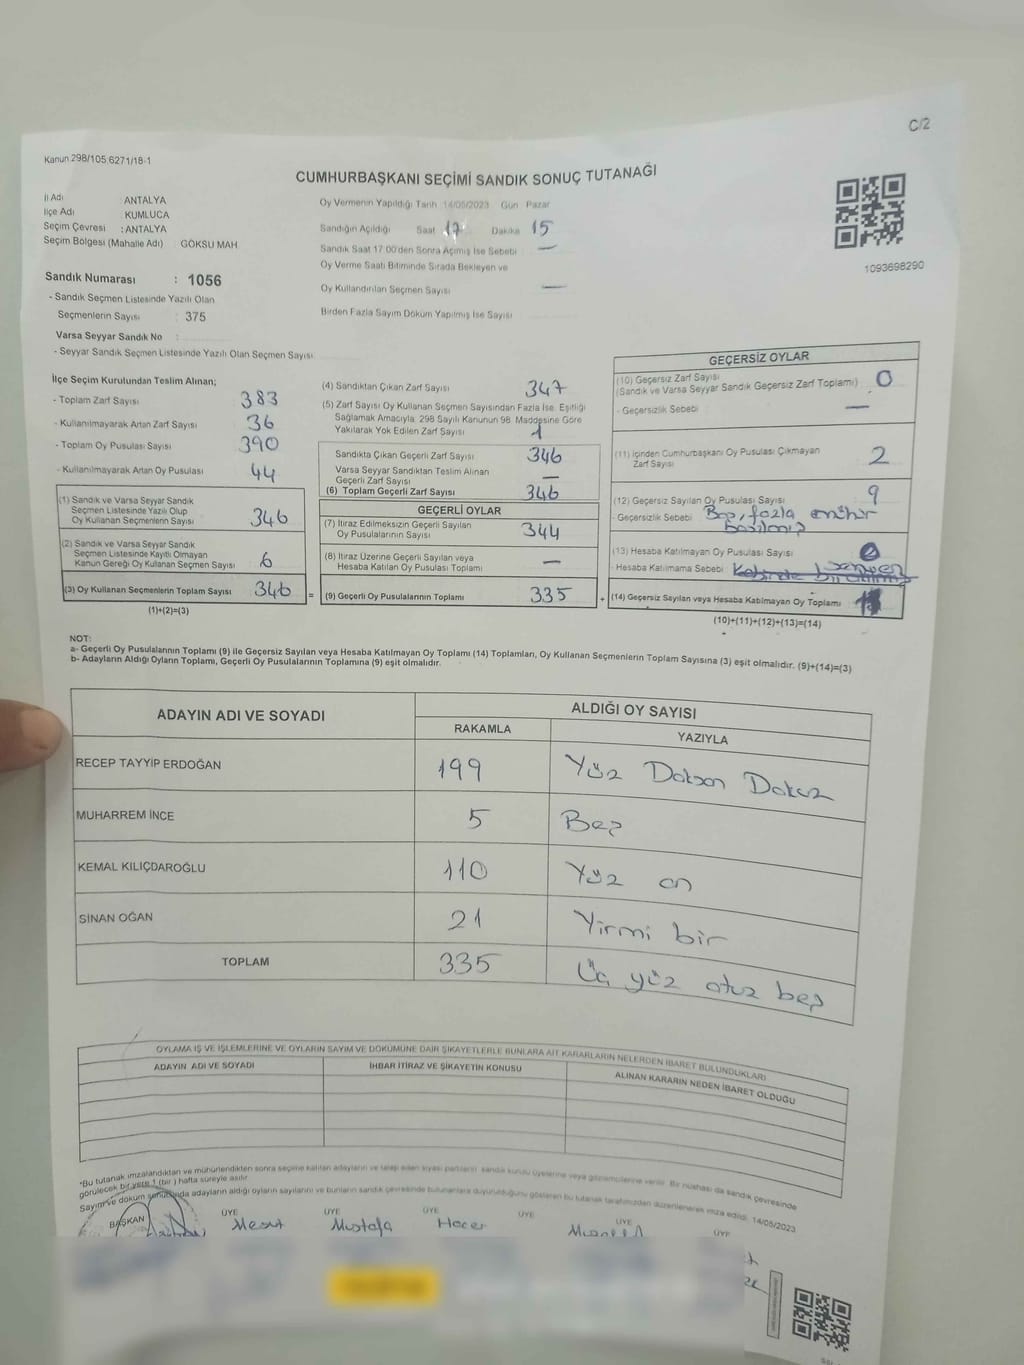 C/2
Kanun 298/105 6271/18-1
CUMHURBAŞKANI SEÇİMİ SANDIK SONUÇ TUTANAĞI
İl Adı : ANTALYA
İlçe Adı : KUMLUCA
Seçim Çevresi : ANTALYA
Seçim Bölgesi (Mahalle Adı) : GÖKSU MAH.
Sandık Numarası : 1056
- Sandık Seçmen Listesinde Yazılı Olan
Seçmenlerin Sayısı : 375
Varsa Seyyar Sandık No :
- Seyyar Sandık Seçmen Listesinde Yazılı Olan Seçmen Sayısı
Oy Vermenin Yapıldığı Tarih 14/05/2023 Gün Pazar
Sandığın Açıldığı Saat 17 Dakika 15
Sandık Saat 17:00'den Sonra Açımış İse Sebebi —
Oy Verme Saati Bitiminde Sırada Bekleyen ve
Oy Kullandırılan Seçmen Sayısı —
Birden Fazla Sayım Döküm Yapılmış İse Sayısı
1093698290
İlçe Seçim Kurulundan Teslim Alınan;
- Toplam Zarf Sayısı 383
- Kullanılmayarak Artan Zarf Sayısı 36
- Toplam Oy Pusulası Sayısı 390
- Kullanılmayarak Artan Oy Pusulası 44
(1) Sandık ve Varsa Seyyar Sandık
Seçmen Listesinde Yazılı Olup
Oy Kullanan Seçmenlerin Sayısı 346
(2) Sandık ve Varsa Seyyar Sandık
Seçmen Listesinde Kayıtlı Olmayan
Kanun Gereği Oy Kulanan Seçmen Sayısı 6
(3) Oy Kullanan Seçmenlerin Toplam Sayısı 346 =
(1)+(2)=(3)
(4) Sandıktan Çıkan Zarf Sayısı 347
(5) Zarf Sayısı Oy Kullanan Seçmen Sayısından Fazla İse, Eşitliği
Sağlamak Amacıyla, 298 Sayılı Kanunun 98. Maddesine Göre
Yakılarak Yok Edilen Zarf Sayısı 1
Sandıkta Çıkan Geçerli Zarf Sayısı 346
Varsa Seyyar Sandıktan Teslim Alınan
Geçerli Zarf Sayısı —
(6) Toplam Geçerli Zarf Sayısı 346
GEÇERLİ OYLAR
(7) İtiraz Edilmeksizin Geçerli Sayılan
Oy Pusulalarının Sayısı 344
(8) İtiraz Üzerine Geçerli Sayılan veya
Hesaba Katılan Oy Pusulaları Toplamı —
(9) Geçerli Oy Pusulalarının Toplamı 335 +
GEÇERSİZ OYLAR
(10) Geçersiz Zarf Sayısı
(Sandık ve Varsa Seyyar Sandık Geçersiz Zarf Toplamı) 0
- Geçersizlik Sebebi —
(11) İçinden Cumhurbaşkanı Oy Pusulası Çıkmayan
Zarf Sayısı 2
(12) Geçersiz Sayılan Oy Pusulası Sayısı 9
- Geçersizlik Sebebi Boş, fazla mühür
basılmış
(13) Hesaba Katılmayan Oy Pusulası Sayısı
- Hesaba Katılmama Sebebi
(14) Geçersiz Sayılan veya Hesaba Katılmayan Oy Toplamı
(10)+(11)+(12)+(13)=(14)
NOT:
a- Geçerli Oy Pusulalarının Toplamı (9) ile Geçersiz Sayılan veya Hesaba Katılmayan Oy Toplamı (14) Toplamları, Oy Kullanan Seçmenlerin Toplam Sayısına (3) eşit olmalıdır. (9)+(14)=(3)
b- Adayların Aldığı Oyların Toplamı, Geçerli Oy Pusulalarının Toplamına (9) eşit olmalıdır.
ADAYIN ADI VE SOYADI ALDIĞI OY SAYISI
RAKAMLA YAZIYLA
RECEP TAYYİP ERDOĞAN 199 Yüz Doksan Dokuz
MUHARREM İNCE 5 Beş
KEMAL KILIÇDAROĞLU 110 Yüz on
SİNAN OĞAN 21 Yirmi bir
TOPLAM 335 Üç yüz otuz beş
OYLAMA İŞ VE İŞLEMLERİNE VE OYLARIN SAYIM VE DÖKÜMÜNE DAİR ŞİKAYETLERLE BUNLARA AİT KARARLARIN NELERDEN İBARET BULUNDUKLARI
ADAYIN ADI VE SOYADI İHBAR İTİRAZ VE ŞİKAYETİN KONUSU ALINAN KARARIN NEDEN İBARET OLDUĞU
*Bu tutanak imzalandıktan ve mühürlendikten sonra seçime katılan adayların ve talep eden siyasi partilerin sandık kurulu üyelerine veya gözlemcilerine verilir. Bir nüshası da sandık çevresinde
görülecek bir yere 1 (bir) hafta süreyle asılır.
Sayım ve döküm sonucunda adayların aldığı oyların sayılarını ve bunların sandık çevresinde bulunanlara duyurulduğunu gösteren bu tutanak tarafımızdan düzenlenerek imza edildi. 14/05/2023
BAŞKAN ÜYE ÜYE ÜYE ÜYE ÜYE ÜYE
Mesut Mustafa Hacer